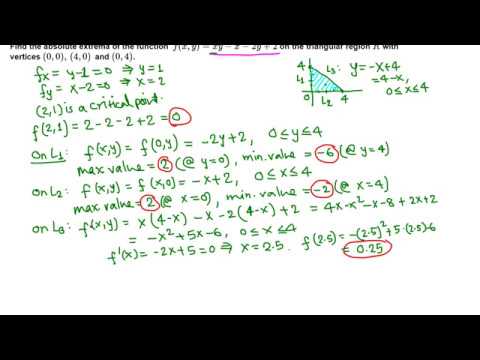 Find the absolute extrema of the function f(x,y) = xy − x − 2y + 2 on the triangular region R with
vertices (0,0), (4,0) and (0,4).
fx = y-1=0 ⇒ y=1
fy = x-2=0 ⇒ x=2
(2,1) is a critical point.
f(2,1) = 2-2-2+2 = 0
4
L1
0
L2
4
L3: y=-x+4
=4-x,
0≤x≤4
On L1: f(x,y) = f(0,y) = -2y+2, 0≤y≤4
max value = 2 (@ y=0), min. value = -6 (@ y=4)
On L2: f(x,y) = f(x,0) = -x+2, 0≤x≤4
max. value = 2 (@ x=0), min. value = -2 (@ x=4)
On L3: f(x,y) = x(4-x)-x-2(4-x)+2 = 4x-x²-x-8+2x+2
= -x²+5x-6, 0≤x≤4
f'(x)= -2x+5=0 ⇒ x=2.5. f(2.5)=-(2.5)²+5·(2.5)-6
= 0.25